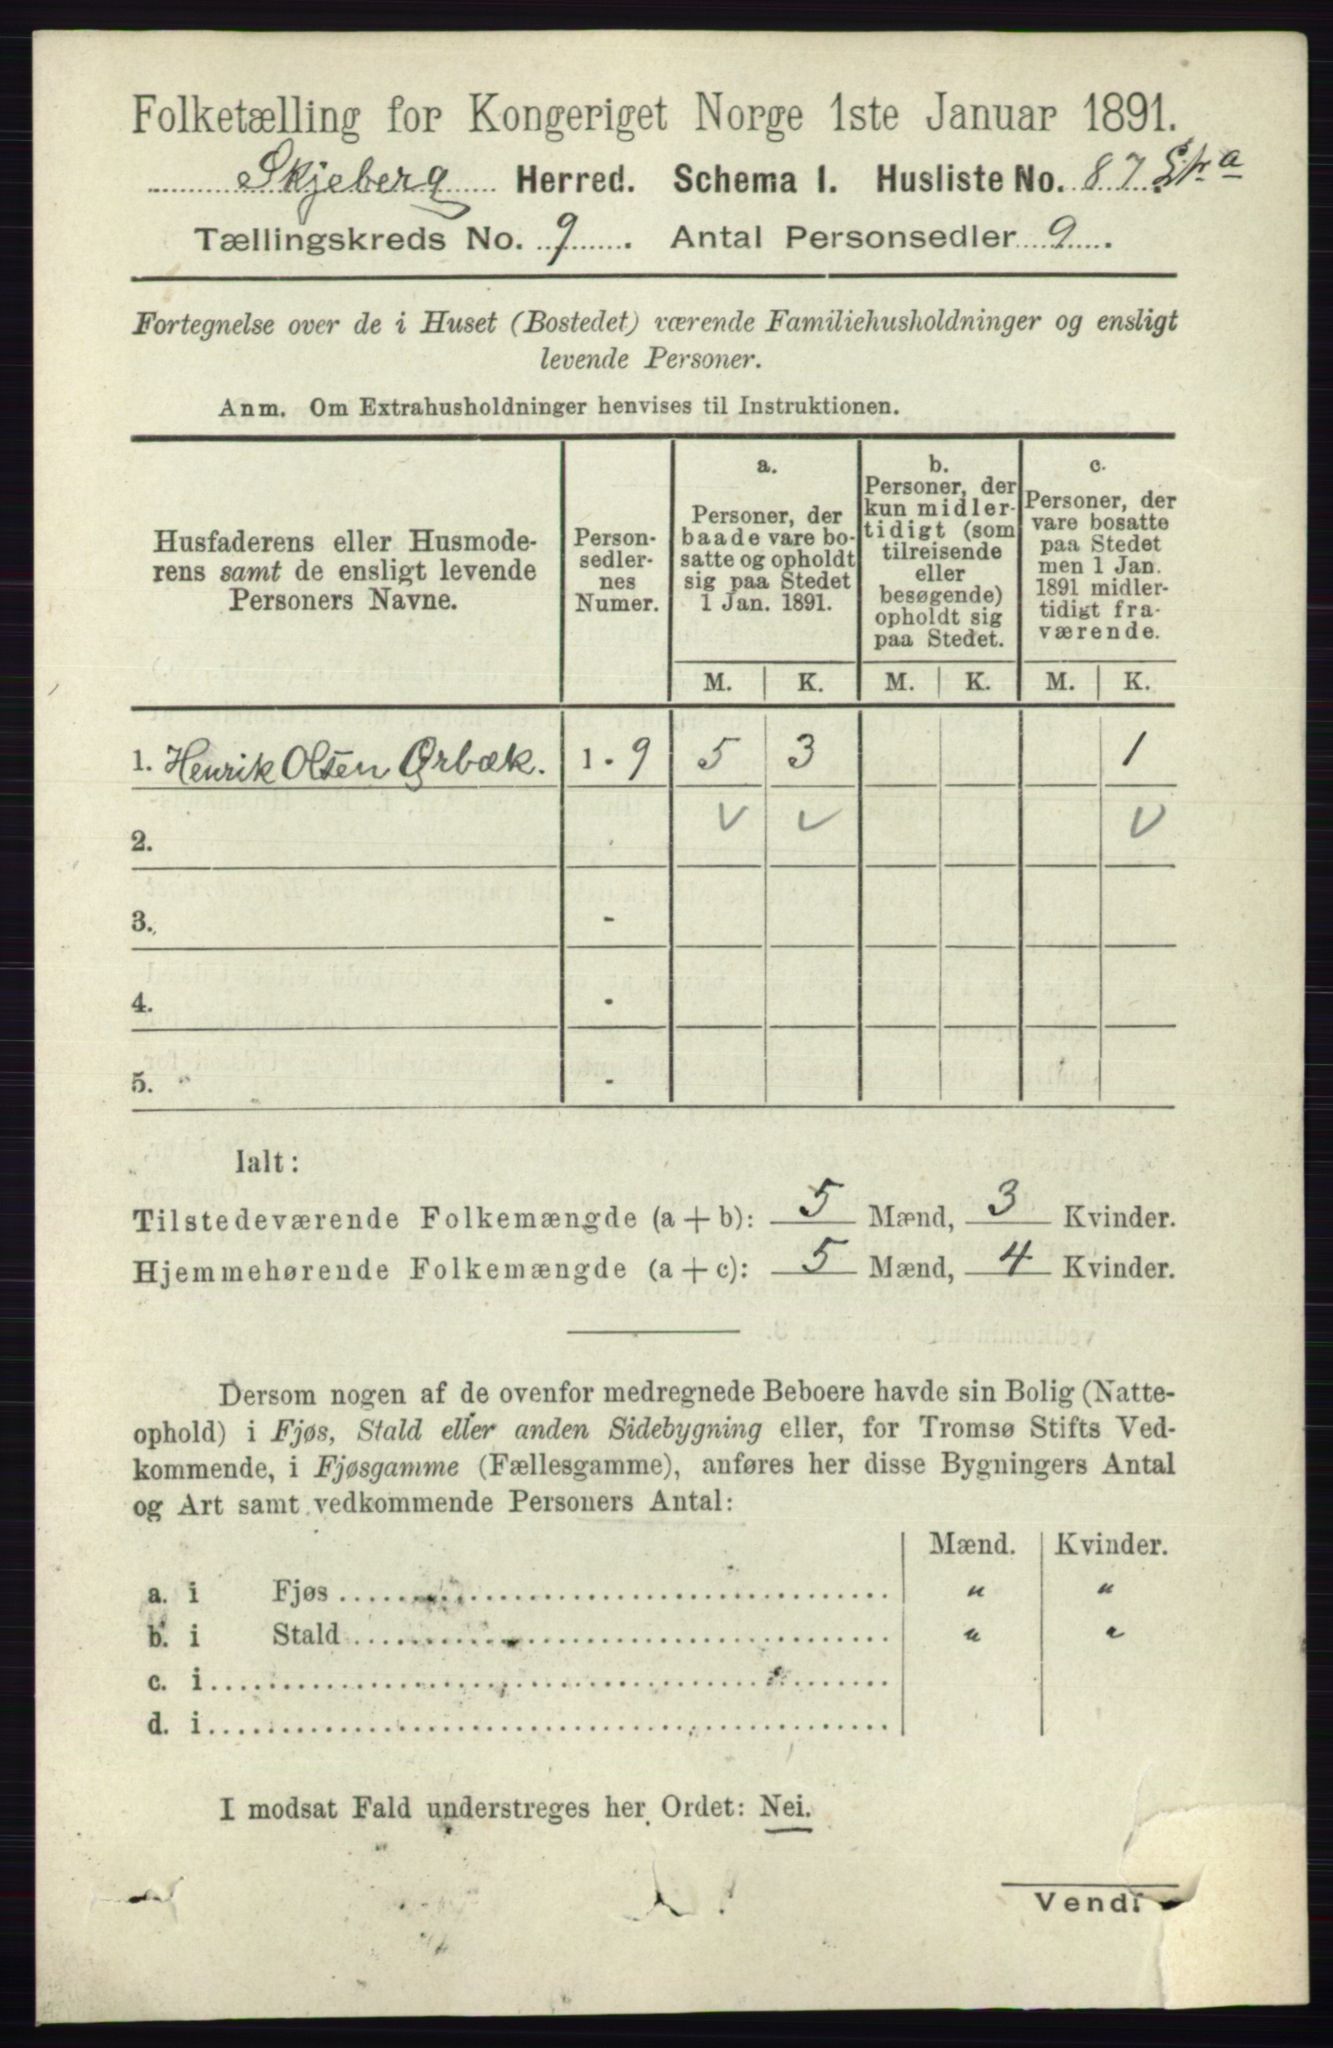 Folketælling for Kongeriget Norge 1ste Januar 1891.
Skjeberg Herred. Schema 1. Husliste No. 87
Tællingskreds No. 9. Antal Personsedler 9.
Fortegnelse over de i Huset (Bostedet) værende Familiehusholdninger og ensligt
levende Personer.
Anm. Om Extrahusholdninger henvises til Instruktionen.
Husfaderens eller Husmode-
rens samt de ensligt levende
Personers Navne.
Person-
sedler-
nes
Numer.
a.
Personer, der
baade vare bo-
satte og opholdt
sig paa Stedet
1 Jan. 1891.
b.
Personer, der
kun midler-
tidigt (som
tilreisende
eller
besøgende)
opholdt sig
paa Stedet.
c.
Personer, der
vare bosatte
paa Stedet
men 1 Jan.
1891 midler-
tidigt fra-
værende.
M. K. M. K. M. K.
1. Henrik Olsen Ørbæk. 1 - 9 5 3 1
2.
3. -
4. -
5. -
Ialt:
Tilstedeværende Folkemængde (a + b): 5 Mænd, 3 Kvinder.
Hjemmehørende Folkemængde (a + c): 5 Mænd, 4 Kvinder.
Dersom nogen af de ovenfor medregnede Beboere havde sin Bolig (Natte-
ophold) i Fjøs, Stald eller anden Sidebygning eller, for Tromsø Stifts Ved-
kommende, i Fjøsgamme (Fællesgamme), anføres her disse Bygningers Antal
og Art samt vedkommende Personers Antal:
Mænd. Kvinder.
a. i Fjøs " "
b. i Stald " "
c. i
d. i
I modsat Fald understreges her Ordet: Nei.
Vend!